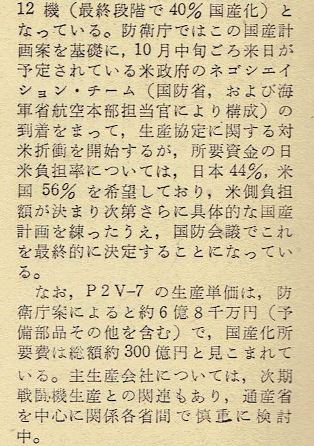 12 機（最終段階で 40% 国産化）と
なっている。防衛庁ではこの国産計
画案を基礎に，10 月中旬ごろ来日が
予定されている米政府のネゴシエイ
ション・チーム（国防省，および海
軍省航空本部担当官により構成）の
到着をまって，生産協定に関する対
米折衝を開始するが，所要資金の日
米負担率については，日本 44%，米
国 56% を希望しており，米側負担
額が決まり次第さらに具体的な国産
計画を練ったうえ，国防会議でこれ
を最終的に決定することになってい
る。
なお，P2V-7 の生産単価は，防
衛庁案によると約 6 億 8 千万円（予
備部品その他を含む）で，国産化所
要費は総額約 300 億円と見こまれて
いる。主生産会社については，次期
戦闘機生産との関連もあり，通産省
を中心に関係各省間で慎重に検討
中。